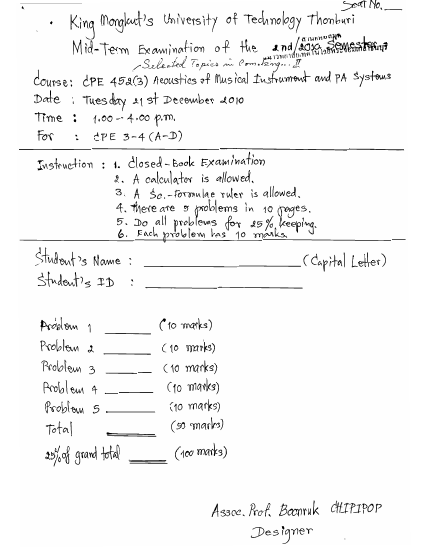 Seat No.___
King Mongkut's University of Technology Thonburi
Mid-Term Examination of the 2nd/2010 Semester
Selected Topics in Computing.. II
Course: CPE 452(3) Acoustics of Musical Instrument and PA Systems
Date : Tuesday 21st December 2010
Time : 1.00-4.00 p.m.
For : CPE 3-4 (A-D)
Instruction : 1. Closed-Book Examination
2. A calculator is allowed.
3. A Sc.-Formulae ruler is allowed.
4. There are 5 problems in 10 pages.
5. Do all problems for 25% keeping.
6. Each problem has 10 marks.
Student's Name : __________ (Capital Letter)
Student's ID : __________
Problem 1 ______ (10 marks)
Problem 2 ______ (10 marks)
Problem 3 ______ (10 marks)
Problem 4 ______ (10 marks)
Problem 5 ______ (10 marks)
Total ______ (50 marks)
25% of grand total _____ (100 marks)
Assoc. Prof. Boonruk CHIPIPOP
Designer